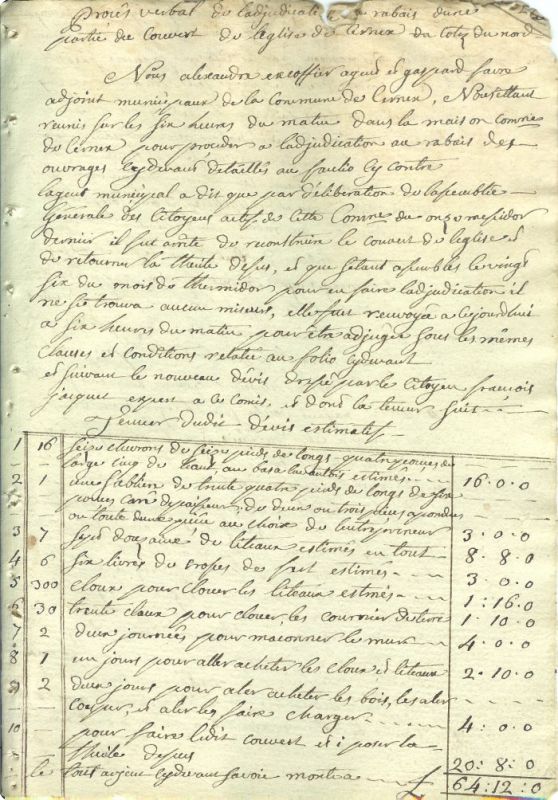 Procès verbal de ladjudication a rabais dune
partie de couvert de leglise de Cernex du coté du nord
Nous alexandre excoffier agent et gaspard favre
adjoint municipaux de la Commune de Cernex, Nous étant
reunis sur les six heures du matin dans la maison Comune
de Cernex pour proceder a ladjudication au rabais des
ouvrages cydevant detaillés au folio cy contre
lagent municipal a dit que par déliberation de lassemblée
Generale des Citoyens actifs de cette Comne du onze messidor
dernier il fut arrete de reconstruire le couvert de leglise et
de retourner la theile dessus, et que setant assemblés le vingt
six du mois de thermidor pour en faire ladjudication il
ne se trouva aucun miseurs, elle fut renvoyé a cejourdhui
a six heures du matin pour être adjugée sous les mêmes
Clauses et Conditions relaté au folio cydevant
et suivant le nouveau dévis dressé par le Citoyen francois
jacquet expert a ce comis, et dont la teneur suit
Teneur dudit dévis estimatif
1 16 seize chevrons de seize pieds de longs quatre pouces de
large cinq de haut au bas estimés 16.0.0
2 1 une sablière de trente quatre pieds de longs de six
pouces carré depaisseur, de deux ou trois pieces apondues
ou toute dune piece au choix de lentrepreneur 3.0.0
3 7 sept douzaine de liteaux estimés en tout 8.8.0
4 6 six livres de estimés 3.0.0
5 300 cloux pour clouer les liteaux estimés 1:16.0
6 30 trente cloux pour clouer les 1.10.0
7 2 deux journées pour maconner le mur 4.0.0
8 1 un jours pour aller acheter les cloux et liteaux 2.10.0
9 2 deux jours pour aler acheter les bois, les aler
couper, et aler les faire charger 4:0.0
10 pour faire ledit couvert et poser la
theile dessus 20:8:0
le tout argent cydevant Savoie monte a £ 64:12:0